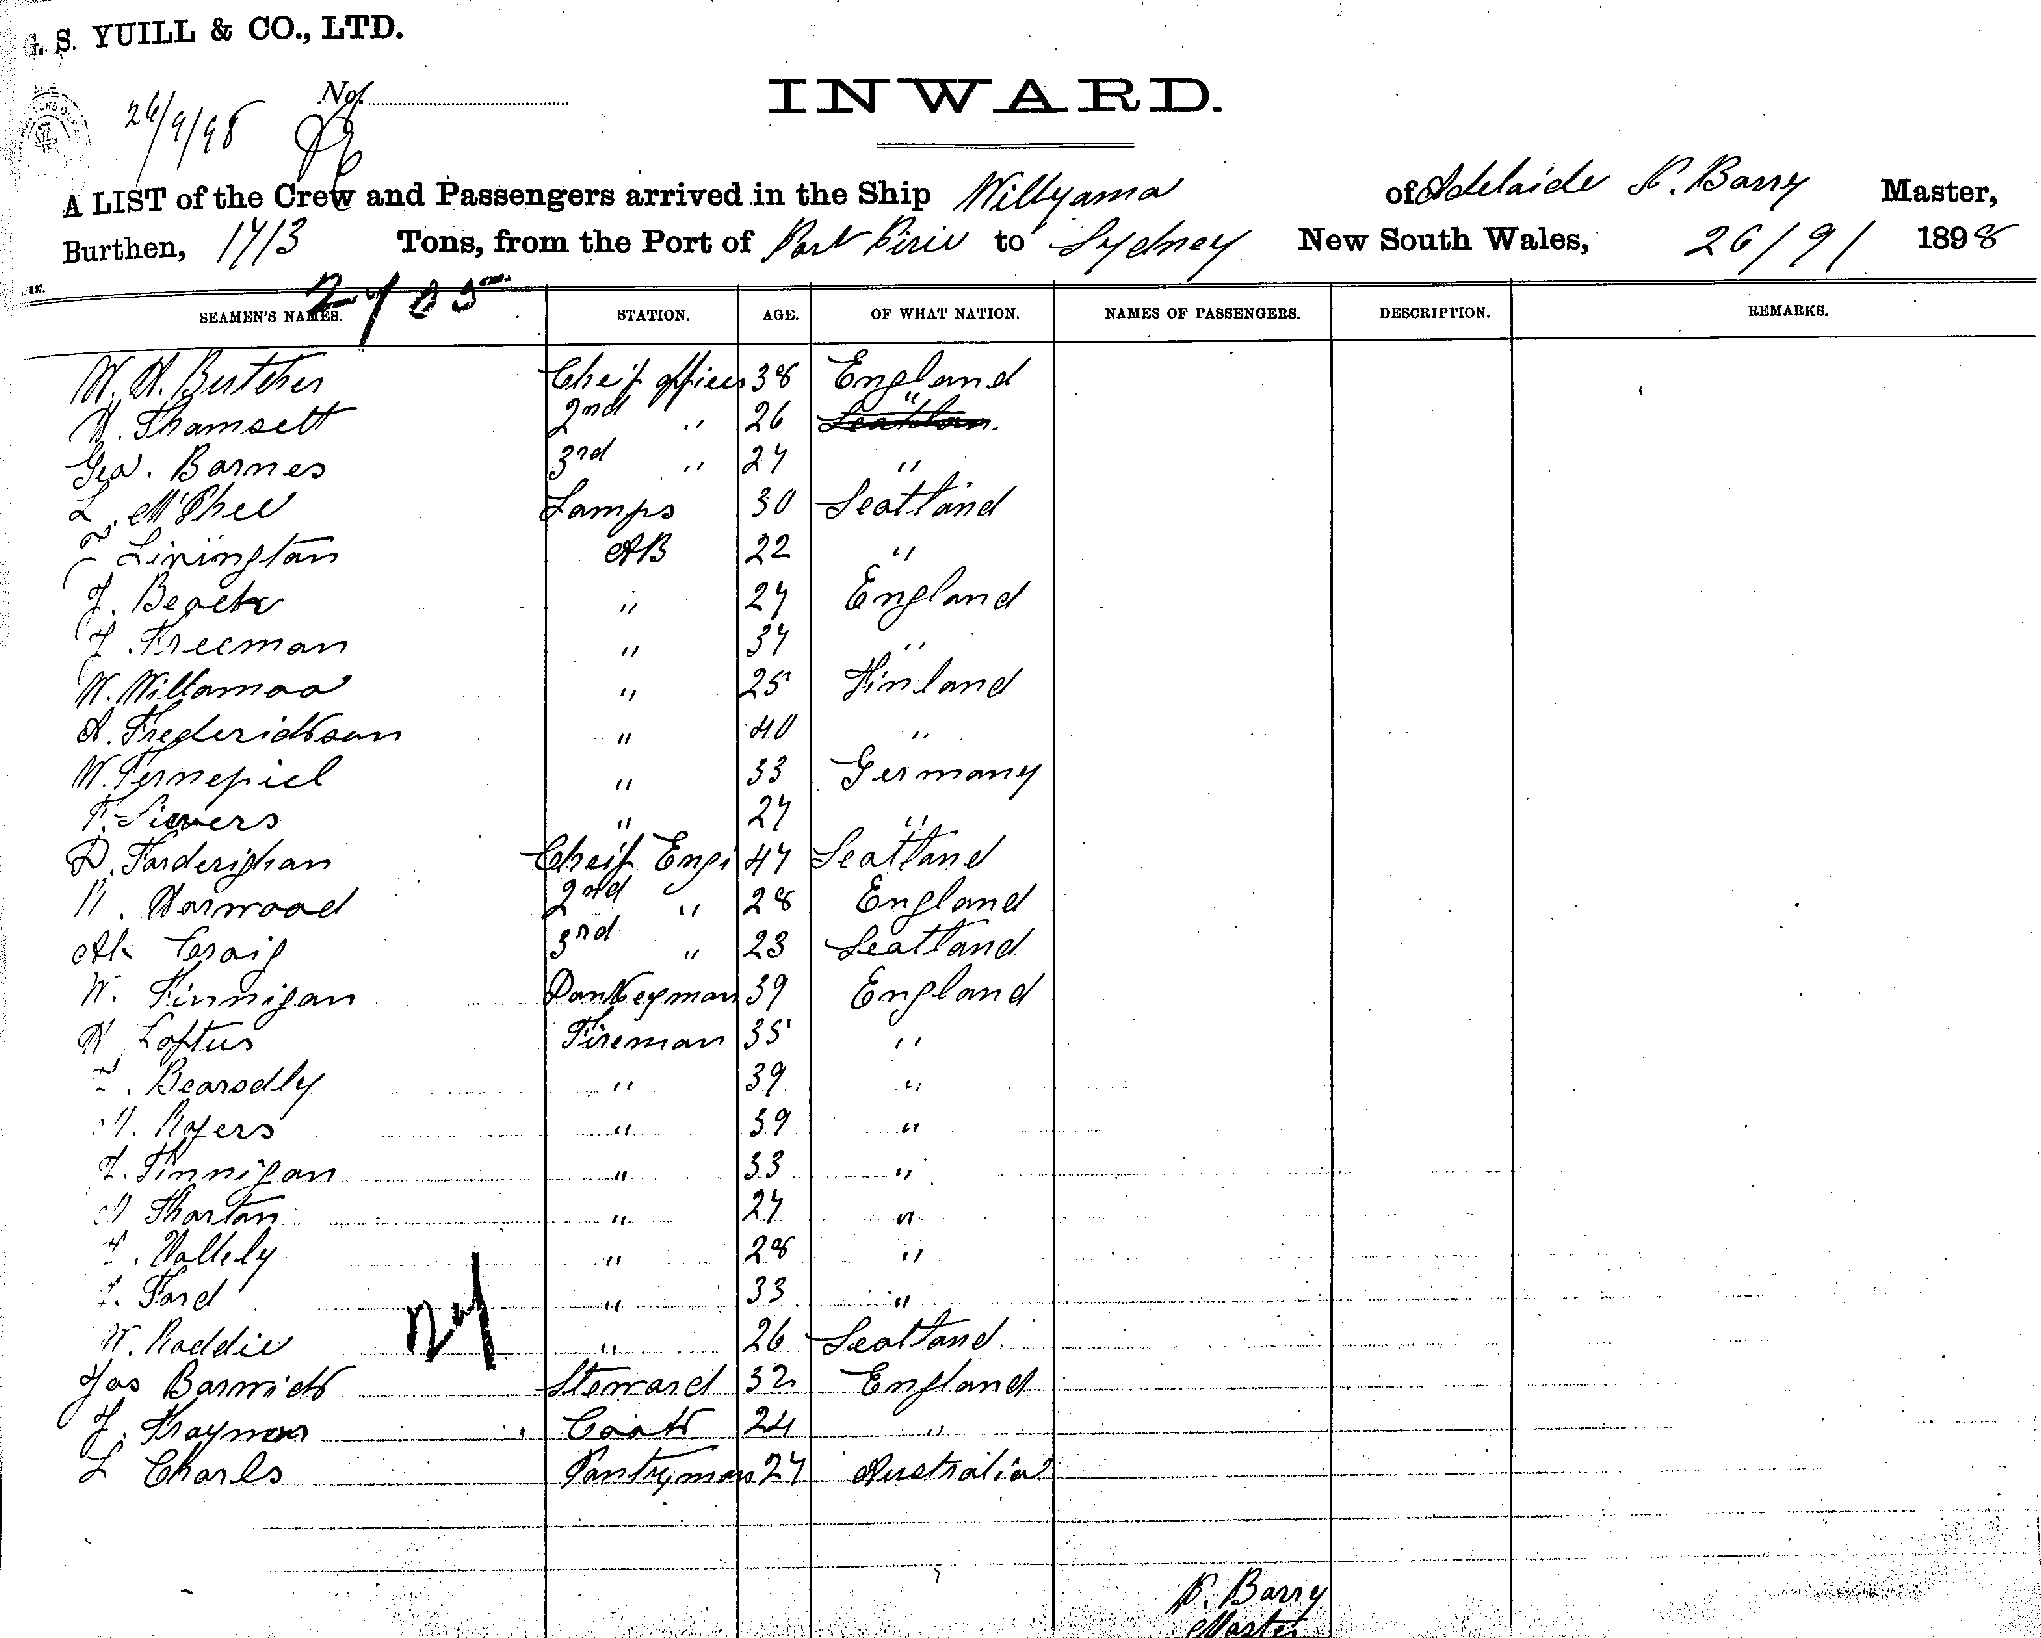 G. S. YUILL & CO., LTD.
26/9/98
No.
INWARD.
A LIST of the Crew and Passengers arrived in the Ship Willyama of Adelaide P. Barry Master,
Burthen, 1713 Tons, from the Port of Port Pirie to Sydney New South Wales, 26/9/ 1898
2705
SEAMEN'S NAMES. STATION. AGE. OF WHAT NATION. NAMES OF PASSENGERS. DESCRIPTION. REMARKS.
W. H. Butcher Cheif officer 38 England
H. Thamsett 2nd " 26 Scotland "
Geo. Barnes 3rd " 27 "
L. McPhee Lamps 30 Scotland
Livington AB 22 "
J. Beack " 27 England
J. Freeman " 37 "
W. Willamoo " 25 Finland
A. Frederickson " 40 "
W. Fernepiel " 33 Germany
F. Sievers " 27 "
D. Farderighan Cheif Engi 47 Scotland
R. Harwood 2nd " 28 England
Ak Craig 3rd " 23 Scotland
W. Finnigan Donkeyman 39 England
H Loftus Fireman 35 "
Bearsdly " 39 "
Rogers " 39 "
J. Finnigan " 33 "
Thortan " 27 "
Vallely " 28 "
J. Ford " 33 "
W. Roddie " 26 Scotland
27
Jas Barwick Steward 32 England
J. Traynor Cook 24 "
L Charls Pantryman 27 Australia
P. Barry
Master